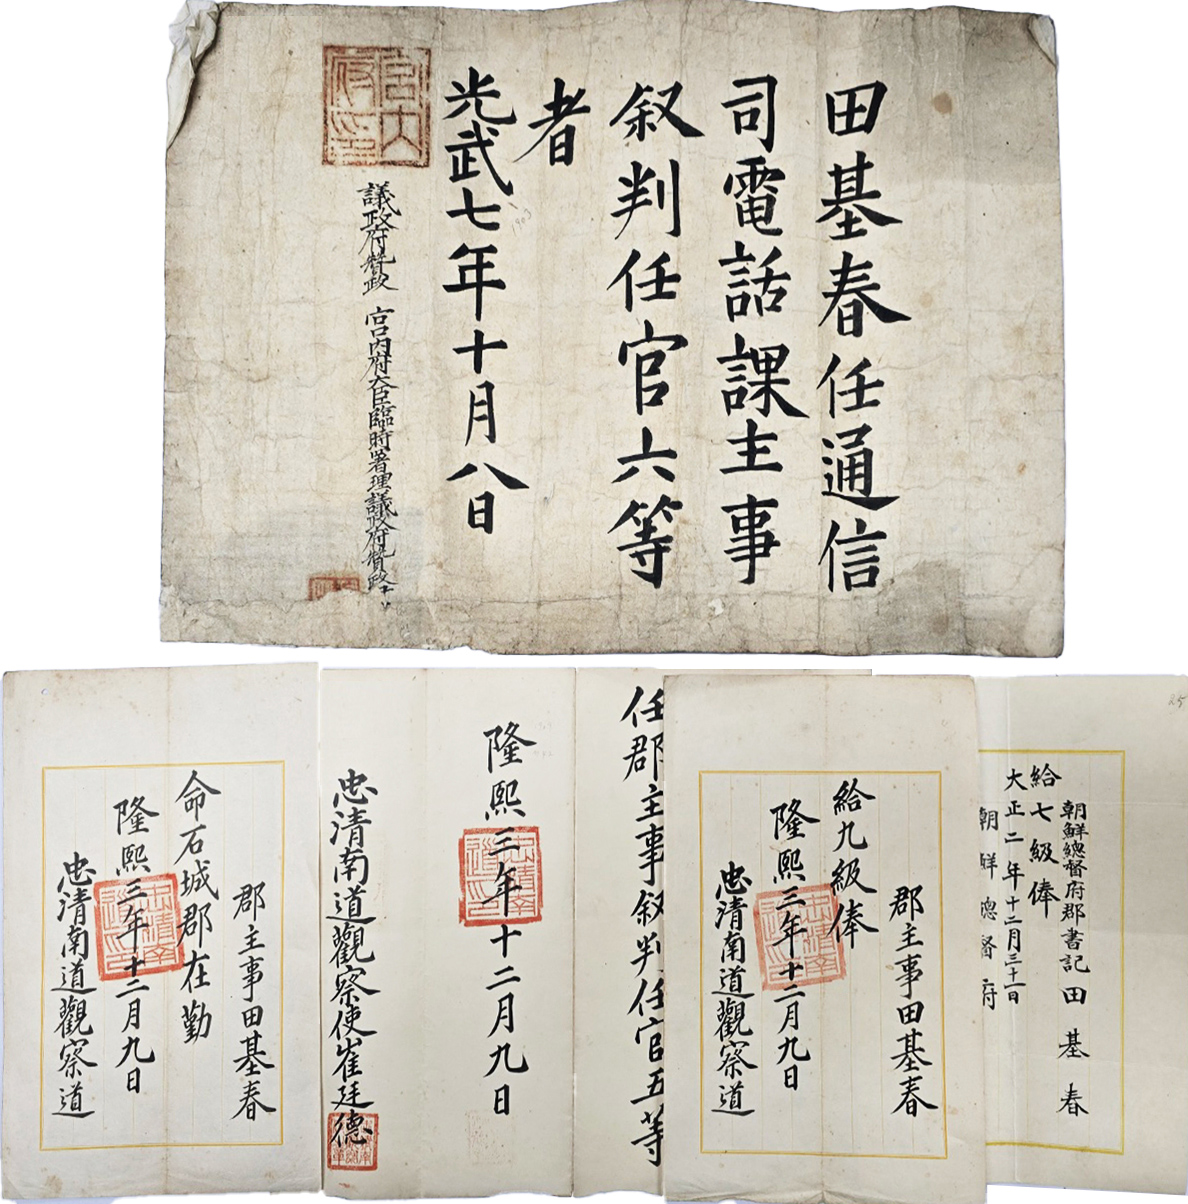 田基春任通信
司電話課主事
叙判任官六等
者
光武七年十月八日
1903
議政府贊政 宮内府大臣臨時署理議政府贊政
宮内府印
郡主事田基春
命石城郡在勤
隆熙三年十二月九日
忠清南道觀察道
任郡主事叙判任官五等
隆熙三年十二月九日
忠清南道觀察使崔廷德
郡主事田基春
給九級俸
隆熙三年十二月九日
忠清南道觀察道
25
朝鮮總督府郡書記田基春
給七級俸
大正二年十二月三十一日
朝鮮總督府